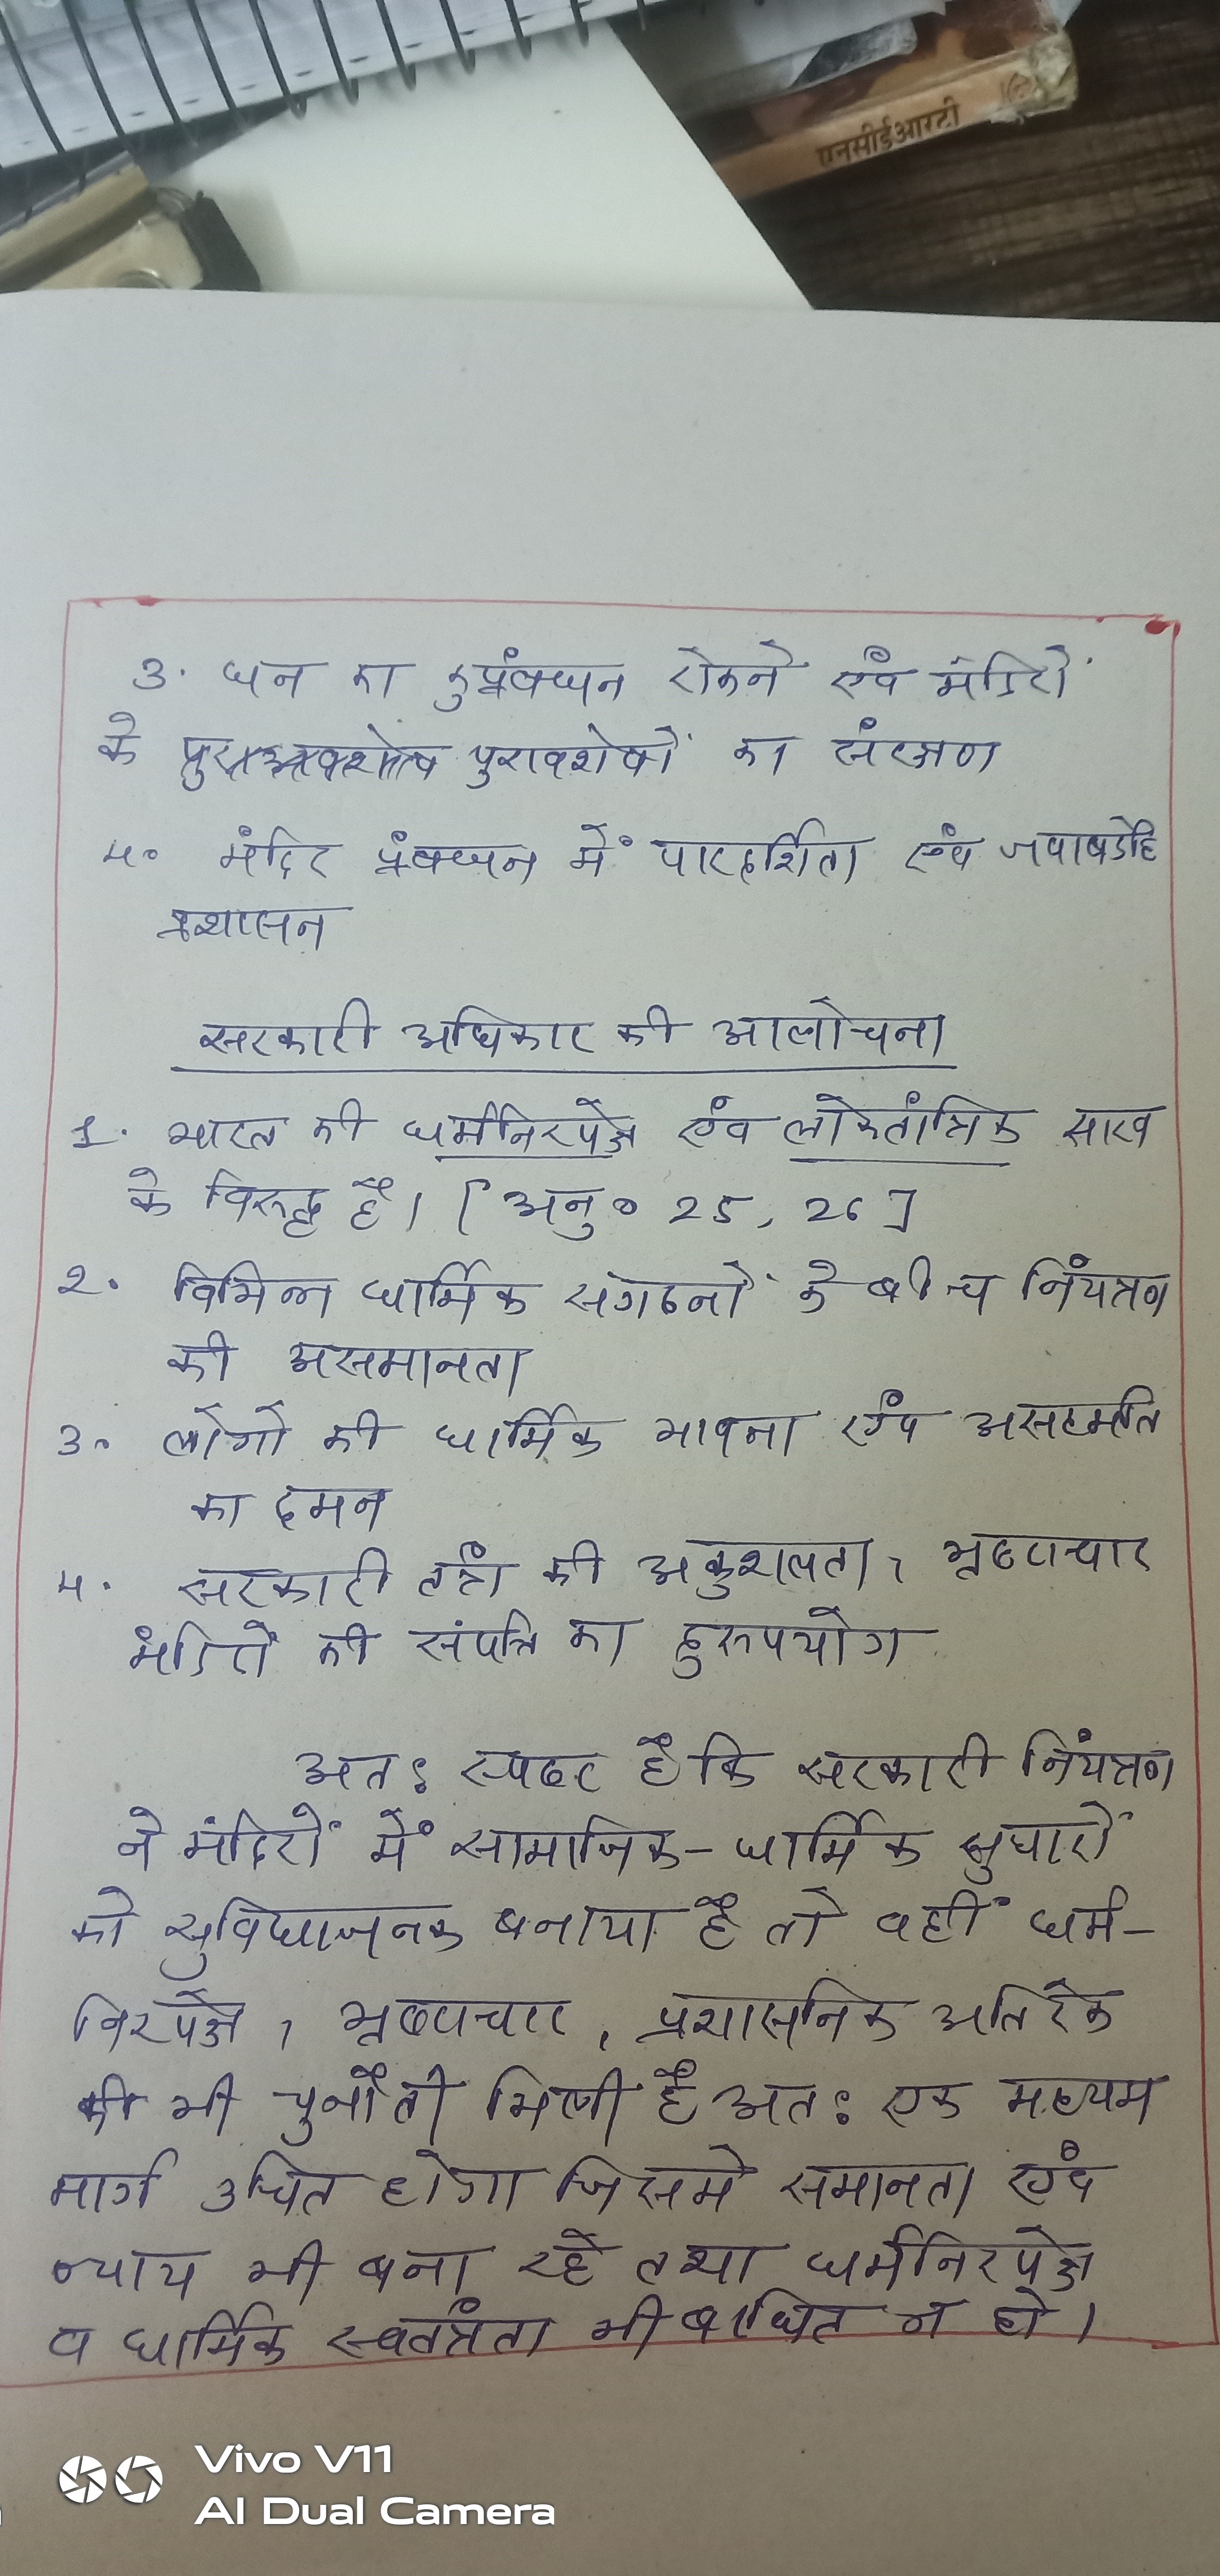 एनसीईआरटी
3. धन का कुप्रंबन्धन रोकने एंव मंदिरों
के पुरावशेषों का संरक्षण
4. मंदिर प्रंबन्धन में पारदर्शिता एंव जवाबदेहि
प्रशासन
सरकारी अधिकार की आलोचना
1. भारत की धर्मनिरपेक्ष एंव लोकतांत्रिक साख
के विरुद्ध है। [अनु० 25, 26]
2. विभिन्न धार्मिक संगठनों के बीच नियंत्रण
की असमानता
3. लोंगो की धार्मिक भावना एंव असहमति
का दमन
4. सरकारी तंत्र की अकुशलता, भ्रष्टाचार
मंदिरों की संपत्ति का दुरुपयोग
अतः स्पष्ट है कि सरकारी नियंत्रण
ने मंदिरों में सामाजिक-धार्मिक सुधारों
को सुविधाजनक बनाया है तो वहीं धर्म-
निरपेक्ष, भ्रष्टाचार, प्रशासनिक अतिरेक
की भी चुनौती मिली है अतः एक मध्यम
मार्ग उचित होगा जिसमे समानता एंव
न्याय भी बना रहे तथा धर्मनिरपेक्ष
व धार्मिक स्वतंत्रता भी बाधित न हो।
Vivo V11
AI Dual Camera